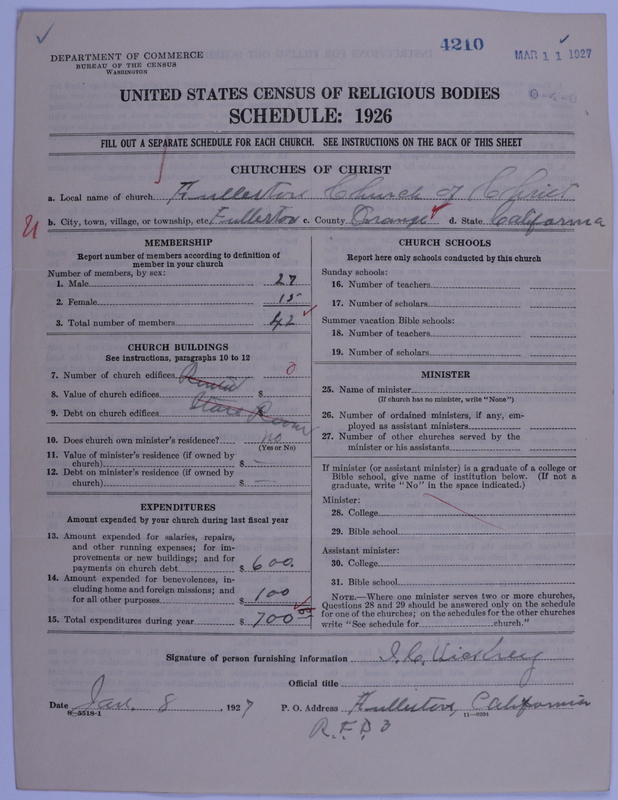 4210
MAR 11 1927
DEPARTMENT OF COMMERCE
BUREAU OF THE CENSUS
WASHINGTON
UNITED STATES CENSUS OF RELIGIOUS BODIES
SCHEDULE: 1926
FILL OUT A SEPARATE SCHEDULE FOR EACH CHURCH. SEE INSTRUCTIONS ON THE BACK OF THIS SHEET
CHURCHES OF CHRIST
a. Local name of church Fullerton Church of Christ
b. City, town, village, or township, etc. Fullerton c. County Orange d. State California
MEMBERSHIP
Report number of members according to definition of
member in your church
Number of members, by sex:
1. Male 27
2. Female 15
3. Total number of members 42
CHURCH BUILDINGS
See instructions, paragraphs 10 to 12
7. Number of church edifices Rented 0
8. Value of church edifices $
Store Room
9. Debt on church edifices $
10. Does church own minister's residence? no
(Yes or No)
11. Value of minister's residence (if owned by
church) $ —
12. Debt on minister's residence (if owned by
church) $ —
EXPENDITURES
Amount expended by your church during last fiscal year
13. Amount expended for salaries, repairs,
and other running expenses; for im-
provements or new buildings; and for
payments on church debt $ 600.
14. Amount expended for benevolences, in-
cluding home and foreign missions; and
for all other purposes 100
15. Total expenditures during year $ 700 00
CHURCH SCHOOLS
Report here only schools conducted by this church
Sunday schools:
16. Number of teachers
17. Number of scholars
Summer vacation Bible schools:
18. Number of teachers
19. Number of scholars
MINISTER
25. Name of minister
(If church has no minister, write "None")
26. Number of ordained ministers, if any, em-
ployed as assistant ministers
27. Number of other churches served by the
minister or his assistants
If minister (or assistant minister) is a graduate of a college or
Bible school, give name of institution below. (If not a
graduate, write "No" in the space indicated.)
Minister:
28. College
29. Bible school
Assistant minister:
30. College
31. Bible school
NOTE.—Where one minister serves two or more churches,
Questions 28 and 29 should be answered only on the schedule
for one of the churches; on the schedules for the other churches
write "See schedule for church."
Signature of person furnishing information
Official title
Date Jan. 8, 1927 P. O. Address Fullerton, California
8—5518-1 11—9204
R.F.D 3